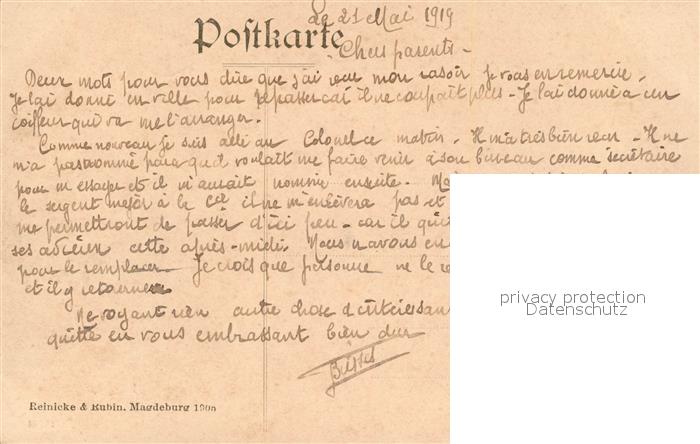 21 Mai 1919
Postkarte
Chers parents -
Deux mots pour vous dire que j'ai reçu mon rasoir je vous en remercie.
Je l'ai donné en ville pour repasser car il ne coupait plus - Je l'ai donné a un
coiffeur qui va me l'arranger.
Comme nouveau je suis allé au Colonel ce matin. Il m'a très bien reçu - Il ne
m'a pas nommé parce qu'il voulait me faire venir à son bureau comme secrétaire
pour m'essayer et il m'aurait nommé ensuite.
le sergent major à la Cie il ne m'enlèvera pas et
me permettront de passer d'ici peu - car il
ses adieux cette après-midi. Nous n'avons
pour le remplacer Je crois que personne ne le
et il y
Ne voyant rien autre chose d'intéressan
quitte en vous embrassant bien dur
Reinicke & Rubin. Magdeburg 1905
privacy protection
Datenschutz